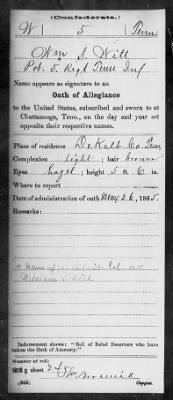 (Confederate.)
W 5 Tenn
Wm S. Witt
Pvt. 5 Regt Tenn Inf
Name appears as signature to an
Oath of Allegiance
to the United States, subscribed and sworn to at
Chattanooga, Tenn., on the day and year set
opposite their respective names.
Place of residence DeKalb Co Tenn
Complexion light; hair brown
Eyes hazel; height 5 ft 6 in.
Where to report
Date of administration of oath May 26, 1865.
Remarks:
Name appears
William S. Witt
Indorsement shows: "Roll of Rebel Deserters who have
taken the Oath of Amnesty."
Number of roll:
sheet 2
(666) Copyist.